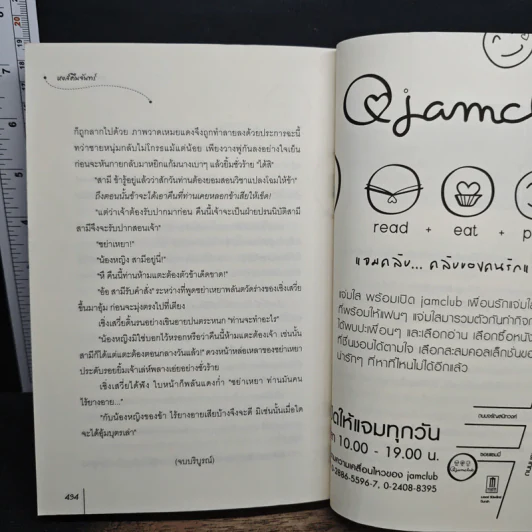 ก็ถูกลากไปด้วย ภาพวาดเหมยแดงจึงถูกทำลายลงด้วยประการฉะนี้
ทว่าชายหนุ่มกลับไม่โกรธแม้แต่น้อย เพียงวางพู่กันลงอย่างใจเย็น
ก่อนจะหันกายกลับมาหยิกแก้มนางเบาๆ แล้วยิ้มชั่วร้าย "ได้สิ"
"สามี ข้ารู้อยู่แล้วว่าสักวันท่านต้องยอมสอนวิชาแปลงโฉมให้ข้า"
ถึงตอนนั้นข้าจะได้เอาคืนที่ท่านเคยหลอกข้าเสียให้เข็ด!
"แต่ว่าเจ้าต้องรับปากมาก่อน คืนนี้เจ้าจะเป็นฝ่ายปรนนิบัติสามี
สามีจึงจะรับปากสอนเจ้า"
"เซย่าเหยา!"
"น้องหญิง สามีอยู่นี่!"
"หึ คืนนี้ท่านห้ามแตะต้องตัวข้าเด็ดขาด!"
"อ้อ สามีรับคำสั่ง" ระหว่างที่พูดเซย่าเหยาพลันตวัดร่างของเซิ่งเสวี่ย
ขึ้นมาอุ้ม ก่อนจะมุ่งตรงไปที่เตียง
เซิ่งเสวี่ยดิ้นรนอย่างเขินอายปนตระหนก "ท่านจะทำอะไร"
"น้องหญิงมิใช่บอกไว้หรอกหรือว่าคืนนี้ห้ามแตะต้องเจ้า เช่นนั้น
สามีก็ได้แต่แตะต้องตอนกลางวันแล้ว!" ดวงหน้าหล่อเหลาของเซย่าเหยา
ประดับรอยยิ้มเจ้าเล่ห์พลางเอ่ยอย่างชั่วร้าย
เซิ่งเสวี่ยได้ฟัง ใบหน้าก็พลันแดงก่ำ "เซย่าเหยา ท่านมันคน
ไร้ยางอาย..."
"กับน้องหญิงของข้า ไร้ยางอายเสียบ้างจึงจะดี มิเช่นนั้นเมื่อใด
จะได้อุ้มบุตรเล่า"
(จบบริบูรณ์)
494
jamclu
read + eat + p
แจ่มคลับ... คลับของคนรักแ
แจ่มใส พร้อมเปิด jamclub เพื่อนรักแจ่มใส
ที่พร้อมให้แฟนๆ แจ่มใสมารวมตัวกันทำกิจก
ได้พบปะเพื่อนๆ และเลือกอ่าน เลือกซื้อหนัง
ที่ชื่นชอบได้ตามใจ เลือกสะสมคอลเล็กชั่นขอ
น่ารักๆ ที่หาที่ไหนไม่ได้อีกแล้ว
ดให้แจมทุกวัน
10.00 - 19.00 น.
ความเคลื่อนไหวของ jamclub
-2886-5596-7, 0-2408-8395